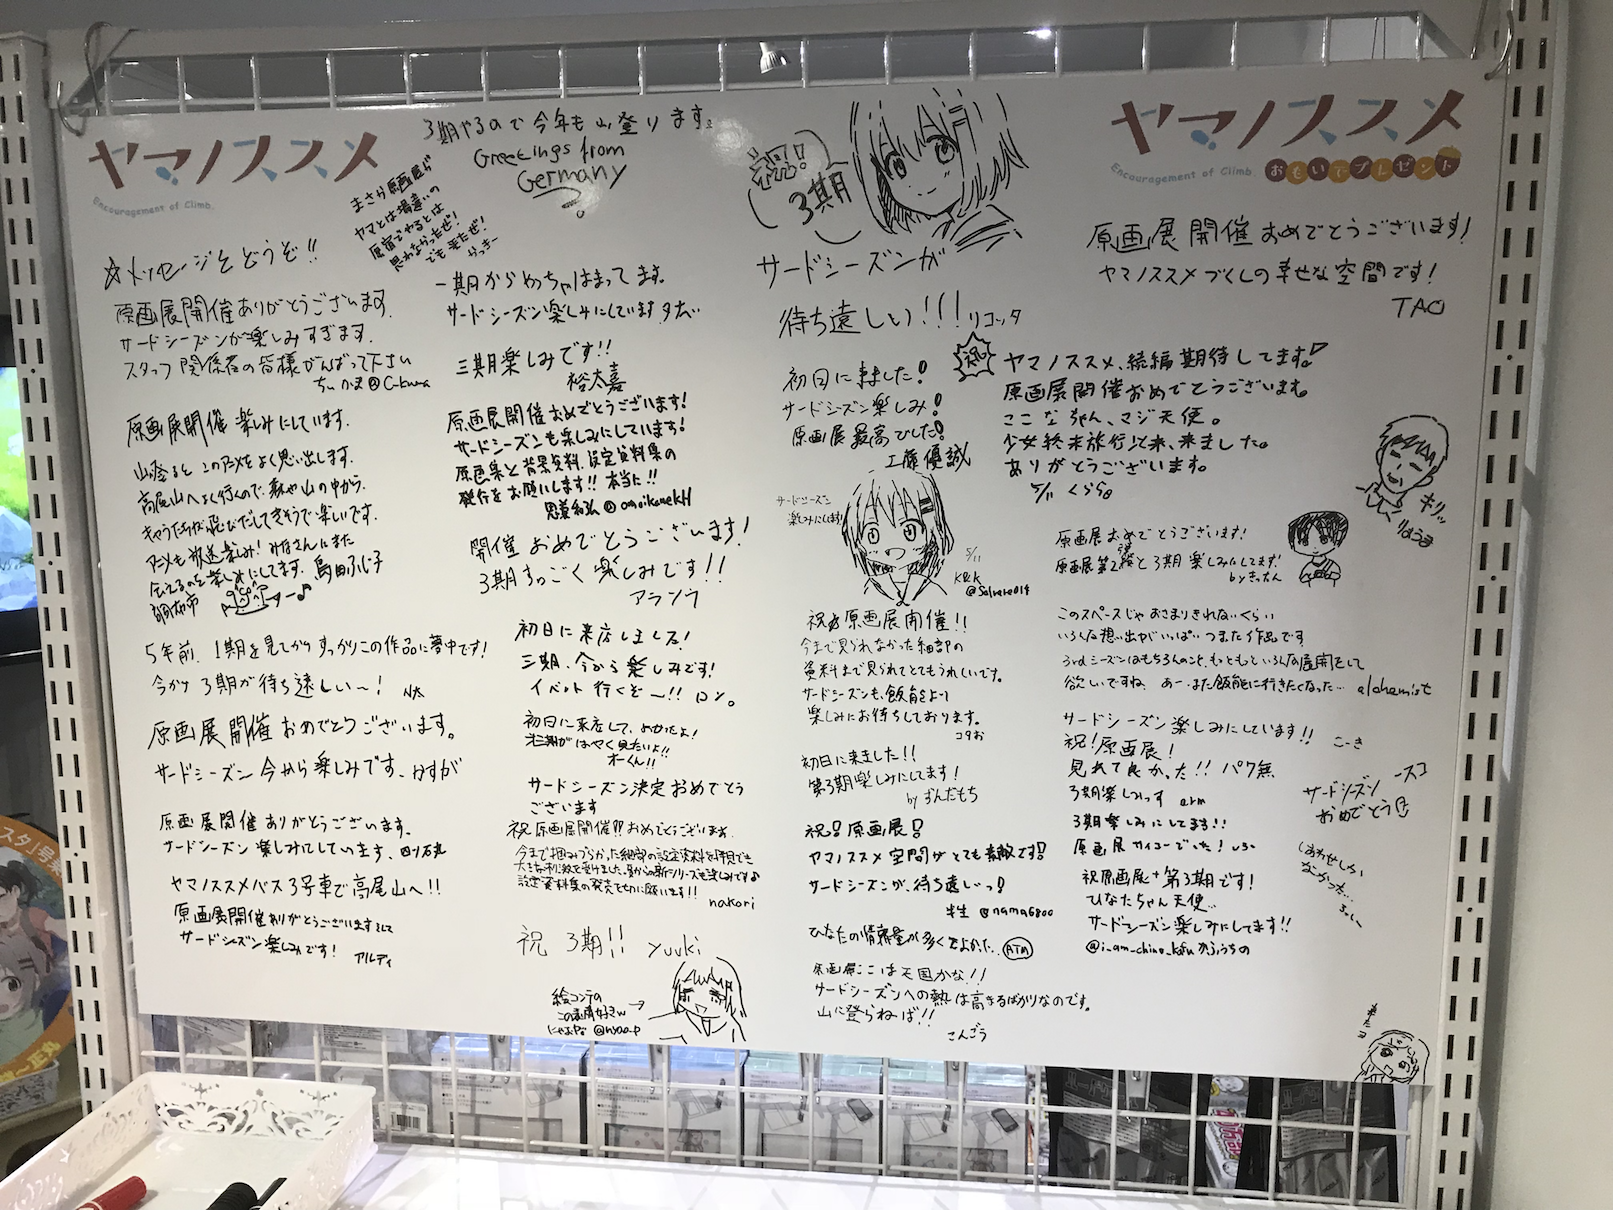 ヤマノススメ
Encouragement of Climb.
☆メッセージをどうぞ!!
原画展開催ありがとうございます。
サードシーズンが楽しみすぎます。
スタッフ関係者の皆様がんばって下さい
原画展開催楽しみにしています。
山登ると このアニメをよく思い出します。
高尾山へよく行くので、森や山の中から、
きゃらたちが飛びだしてきそうで楽しいです。
アニメも放送楽しみ!みなさんにまた
会えるのを楽しみにしてます。島田ふじ子
調布市
5年前、1期を見てからすっかりこの作品に夢中です!
今から3期が待ち遠しい～!
原画展開催おめでとうございます。
サードシーズン今から楽しみです、かすが
原画展開催ありがとうございます。
サードシーズン楽しみにしています、
ヤマノススメバス3号車で高尾山へ!!
原画展開催ありがとうございますして
サードシーズン楽しみです! アルディ
3期やるので今年も山登ります。
Greetings from
Germany
まさか原画展が
ヤマとは場違いの
原宿でやるとは
思わなかったぜ!
でも来たぜ!
らっきー
一期からめっちゃはまってます。
サードシーズン楽しみにしています
三期楽しみです!!
裕太嘉
原画展開催おめでとうございます!
サードシーズンも楽しみにしています!
原画集と背景資料、設定資料集の
発行をお願いします!! 本当に!!
@omoikaneKH
開催おめでとうございます!
3期すっごく楽しみです!!
アランソ
初日に来店しました!
三期、今から楽しみです!
イベント行くぞ～!! ロン。
初日に来店して、よかったよ!
三期がはやく見たいよ!!
オーくん!!
サードシーズン決定おめでとう
ございます
祝原画展開催!!おめでとうございます。
今まで掴みづらかった細部の設定資料を拝見でき
大きな刺激を受けました。夏からの新シリーズも楽しみです♪
設定資料集の発売も切に願います!! nakori
祝 3期!! yuuki
絵コンテの
この表情好きw
→
祝!
3期
サードシーズンが
待ち遠しい!!! リコッタ
初日に来ました!
サードシーズン楽しみ!
原画展最高でした!
工藤優誠
サードシーズン
楽しみにしてます!
5/11
K&K
祝☆原画展開催!!
今まで見られなかった細部の
資料まで見られてとてもうれしいです。
サードシーズンも、飯能をよって
楽しみにお待ちしております。
コタお
初日に来ました!!
第3期楽しみにしてます!
by ずんだもち
祝!原画展!
ヤマノススメ空間がとても素敵です!
サードシーズンが、待ち遠しいっ!
半生 @nama6800
ひなたの情報量が多くてよかった。 ATM
原画展ここは天国かな!!
サードシーズンへの熱は高まるばかりなのです。
山に登らねば!!
こんごう
ヤマノススメ
Encouragement of Climb.
おもいでプレゼント
原画展開催おめでとうございます!
ヤマノススメづくしの幸せな空間です!
TAO
祝
ヤマノススメ、続編期待してます!
原画展開催おめでとうございます。
ここなちゃん、マジ天使。
少女終末旅行以来、来ました。
ありがとうございます。
5/11 くらら8
キリッ
りょうま
原画展おめでとうございます!
原画展第2弾と3期楽しみにしてます!
by きったん
このスペースじゃおさまりきれないくらい
いろんな想い出がいっぱいつまった作品です
3rdシーズンはもちろんのこと、もっともといろんな展開をして
欲しいですね。あー、また飯能に行きたくなった… alchemist
サードシーズン楽しみにしています!! こーき
祝!原画展!
見れて良かった!! パク無
3期楽しみっす arm
3期楽しみにしてます!!
原画展サイコーでした!
祝原画展+第3期です!
ひなたちゃん天使…
サードシーズン楽しみにしてます!!
@i_am_chino_kafu かふうちの
サードシーズン
おめでとう
しあわせしか
なかった…
来たヨ